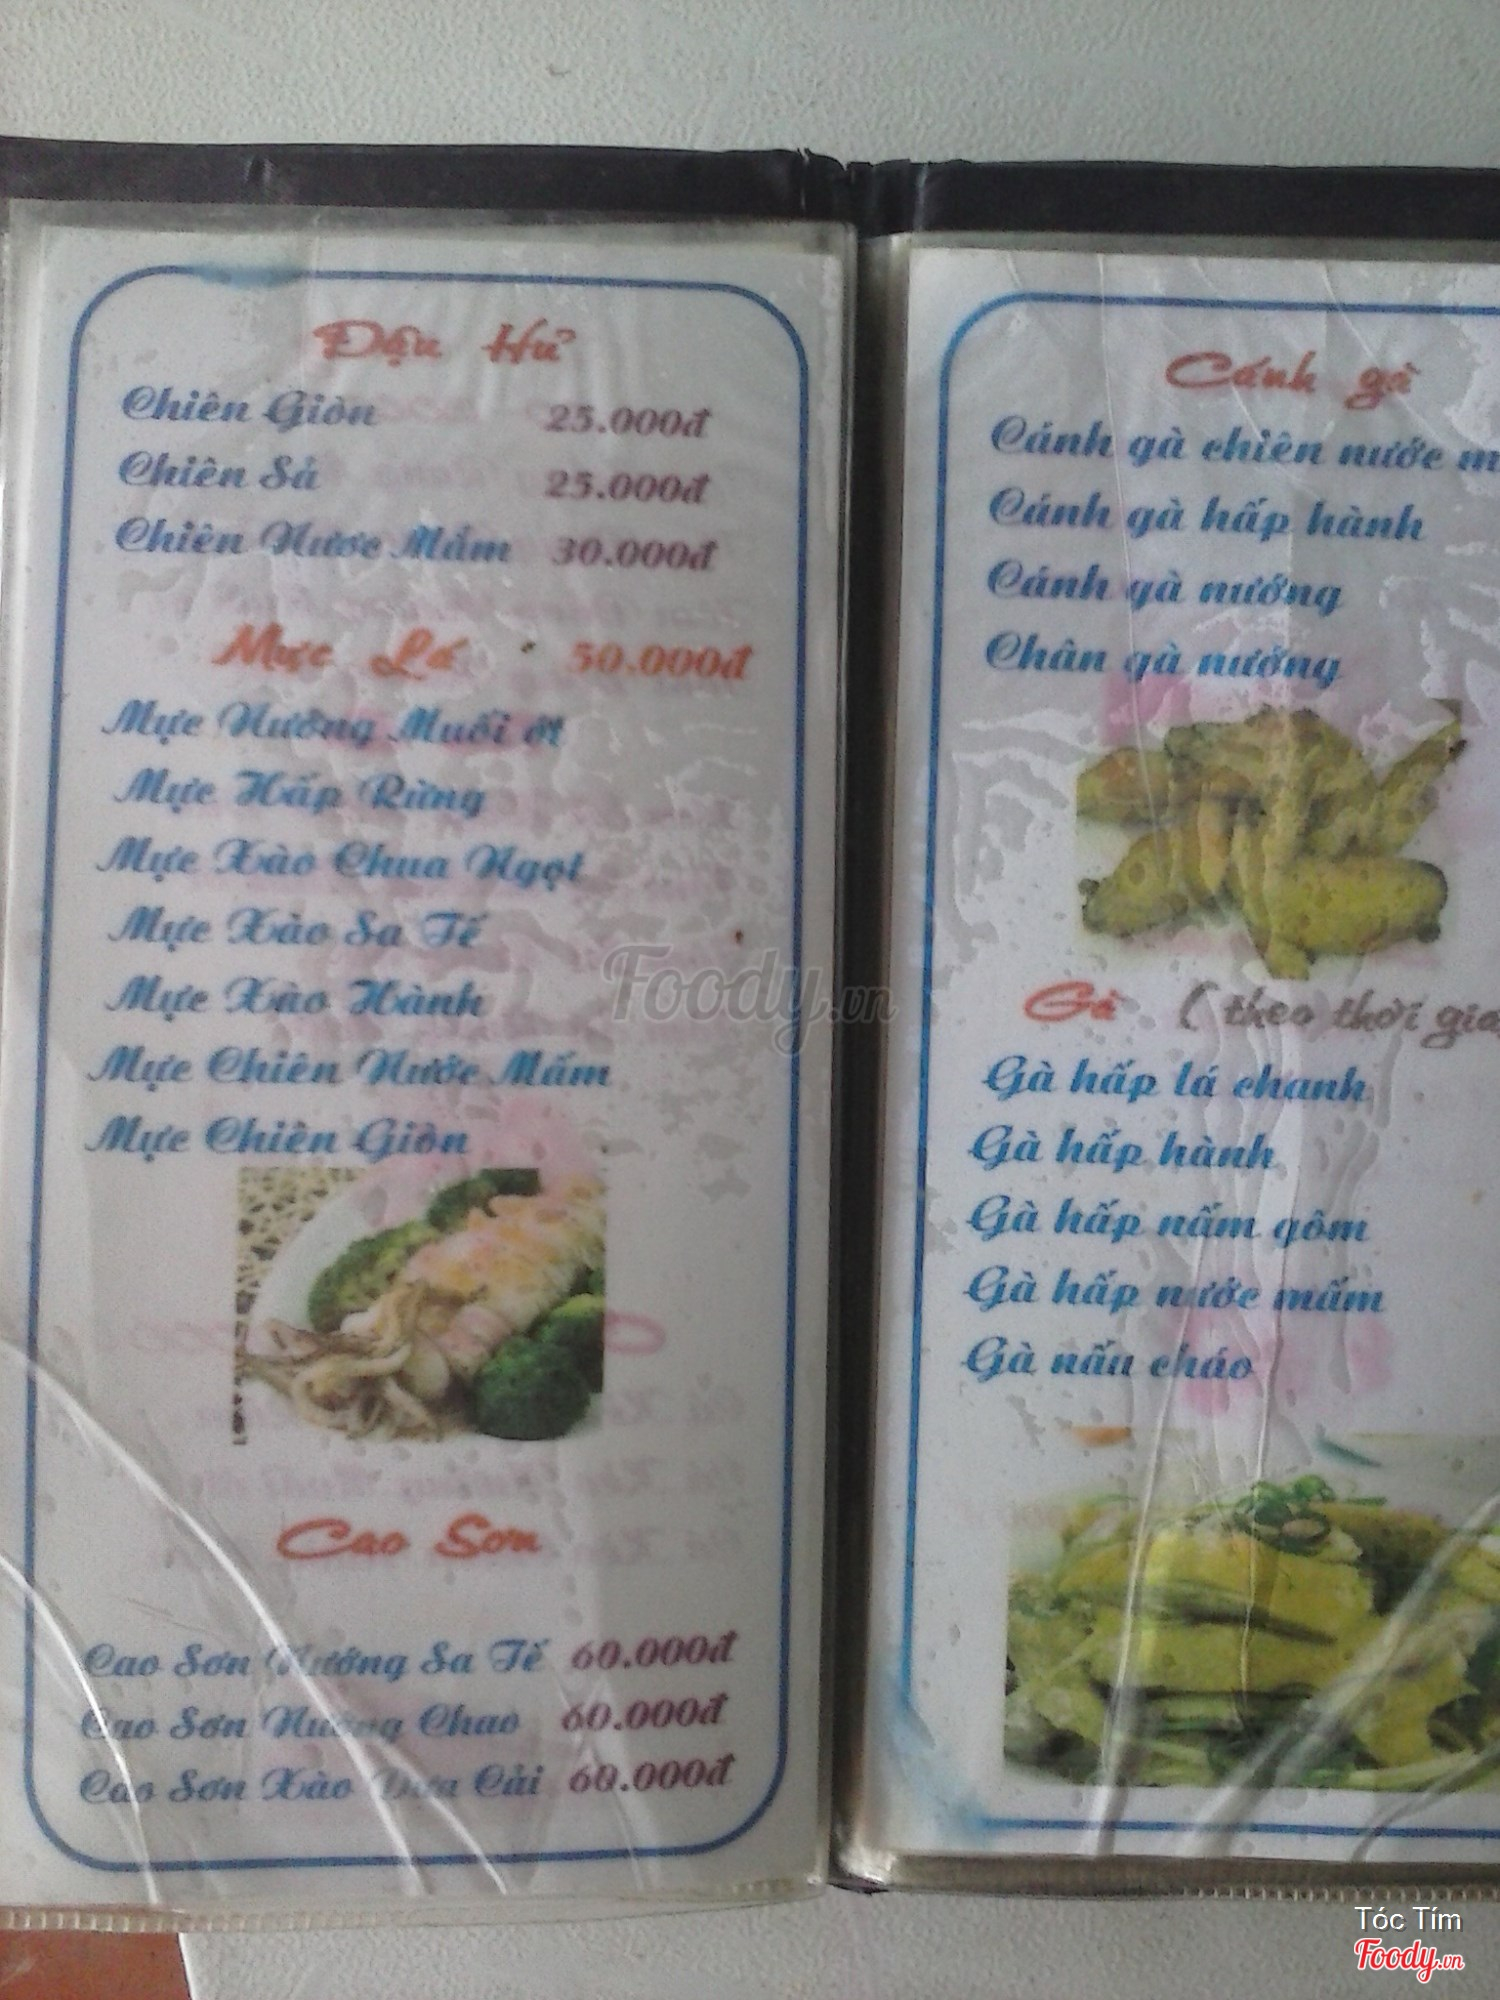 Đậu Hủ
Chiên Giòn 25.000đ
Chiên Sả 25.000đ
Chiên Nươc Mắm 30.000đ
Mực Lá 50.000đ
Mực Nướng Muối ớt
Mực Hấp Rừng
Mực Xào Chua Ngọt
Mực Xào Sa Tế
Mực Xào Hành
Mực Chiên Nước Mắm
Mực Chiên Giòn
Cao Sơn
Cao Sơn Nướng Sa Tế 60.000đ
Cao Sơn Nướng Chao 60.000đ
Cao Sơn Xào Dưa Cải 60.000đ
Cánh gà
Cánh gà chiên nước m
Cánh gà hấp hành
Cánh gà nướng
Chân gà nướng
Gà ( theo thời gia
Gà hấp lá chanh
Gà hấp hành
Gà hấp nấm gôm
Gà hấp nước mấm
Gà nấu cháo
Foody.vn
Tóc Tím
Foody.vn